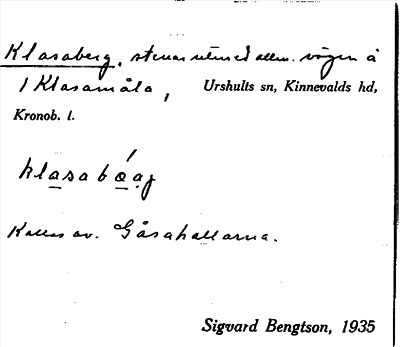 Klasaberg, stenar utmed allm. vägen å
1 Klasamåla, Urshults sn, Kinnevalds hd,
Kronob. l.
klasabǽ̱a̱j
Kallas av. Gåsahallarna.
Sigvard Bengtson, 1935